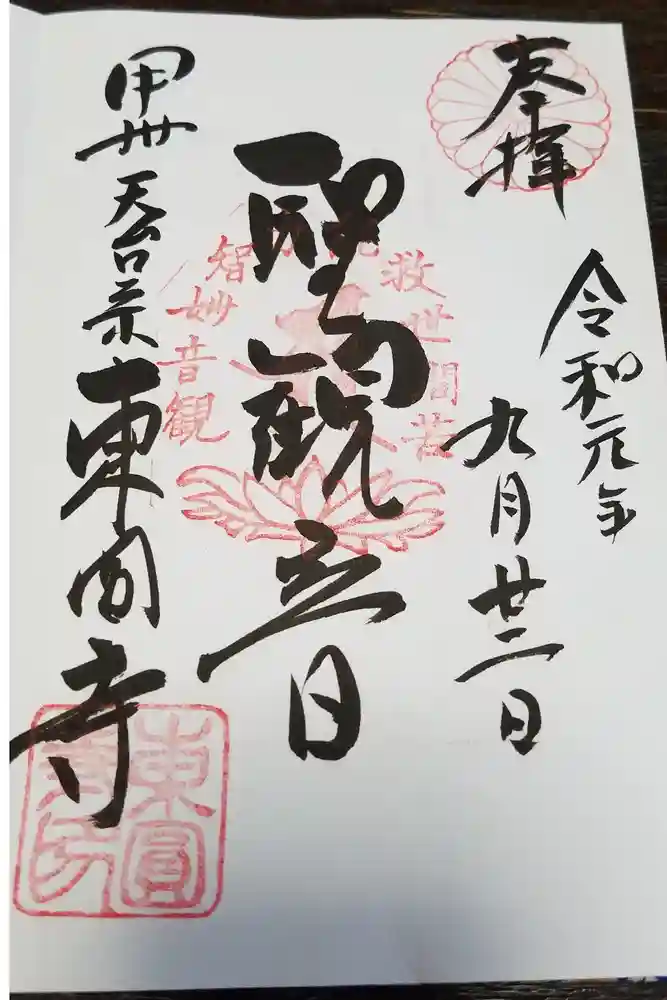 奉拝
令和元年
九月廿二日
聖観音
観音妙智
能救世間苦
甲州 天台宗 東圓寺
東圓
寺印